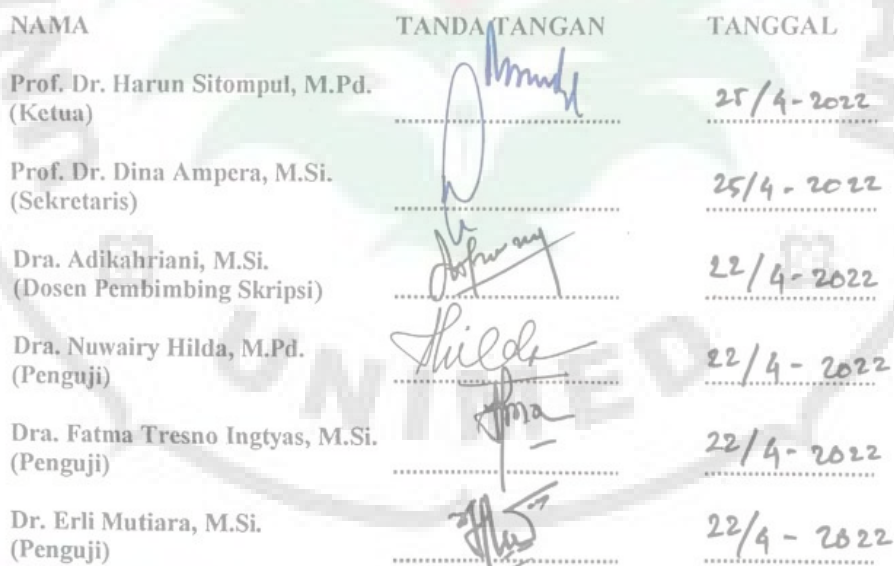 NAMA TANDA TANGAN TANGGAL
Prof. Dr. Harun Sitompul, M.Pd.
(Ketua) 25/4-2022
Prof. Dr. Dina Ampera, M.Si.
(Sekretaris) 25/4-2022
Dra. Adikahriani, M.Si.
(Dosen Pembimbing Skripsi) 22/4-2022
Dra. Nuwairy Hilda, M.Pd. Hilda
(Penguji) 22/4-2022
Dra. Fatma Tresno Ingtyas, M.Si.
(Penguji) 22/4-2022
Dr. Erli Mutiara, M.Si.
(Penguji) 22/4-2022
UNIMED